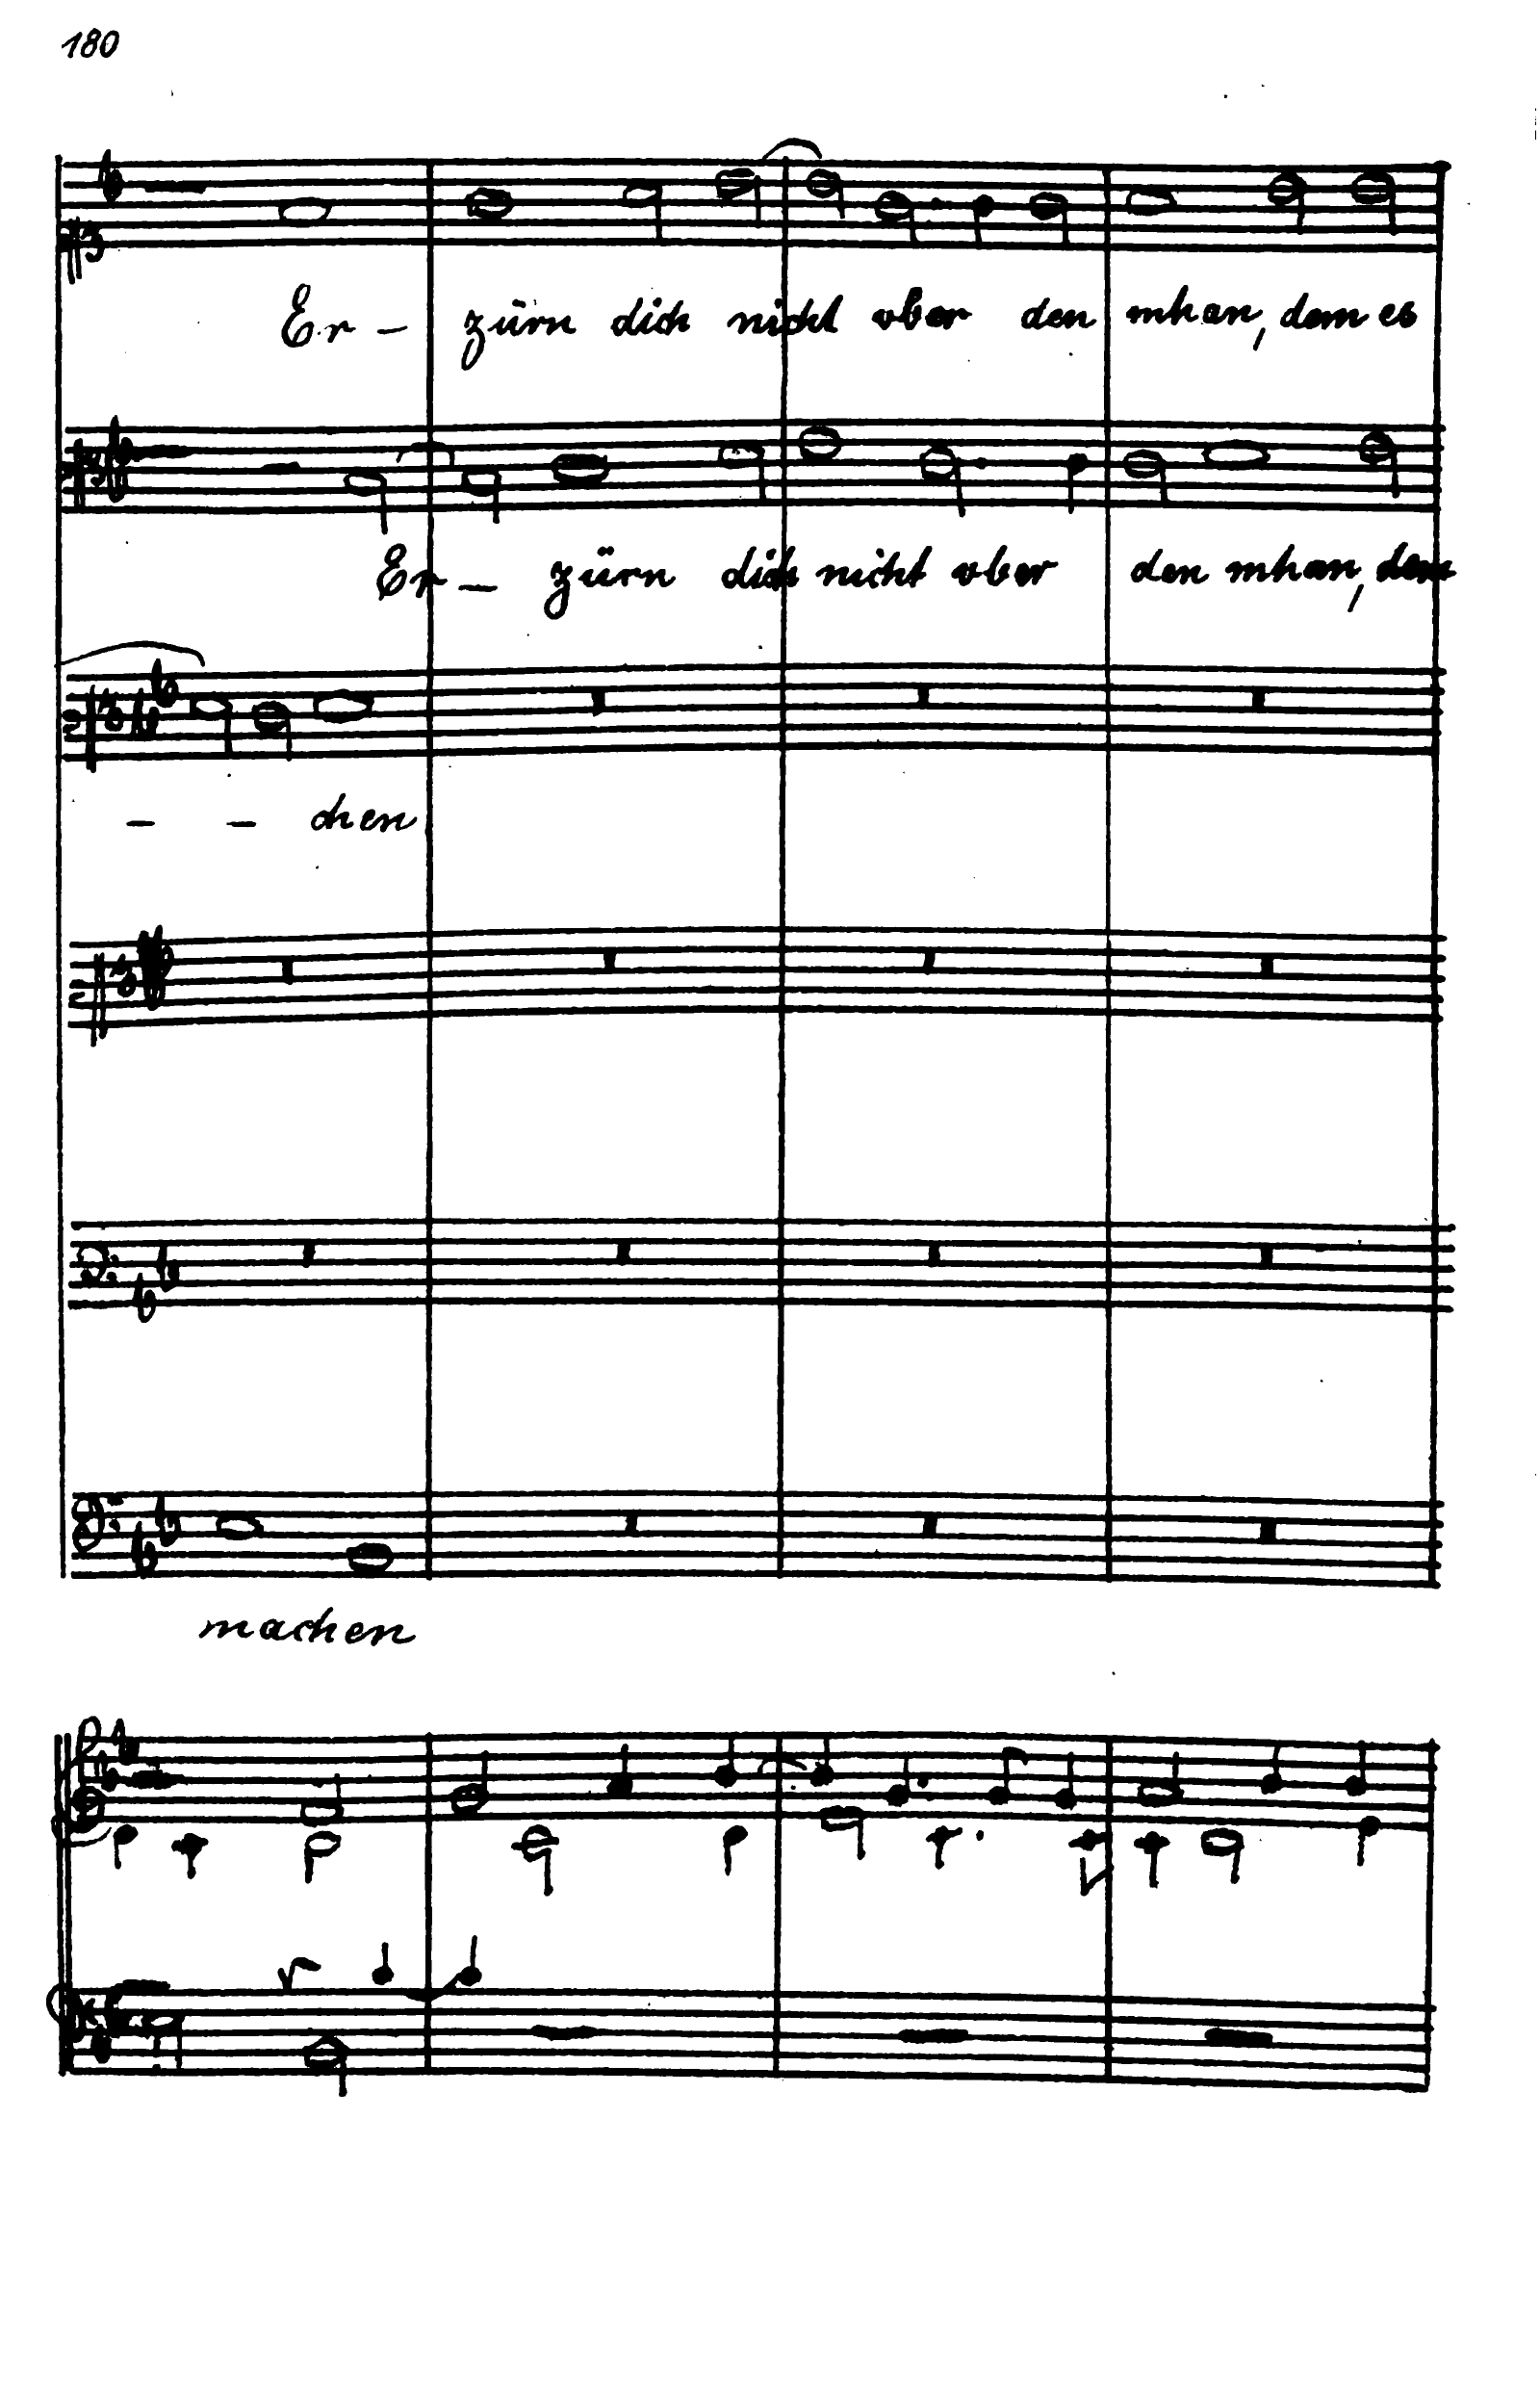 180
Er - zürn dich nicht vber den mhan, dem es
Er - zürn dich nicht vber den mhan, dem
- - chen
machen